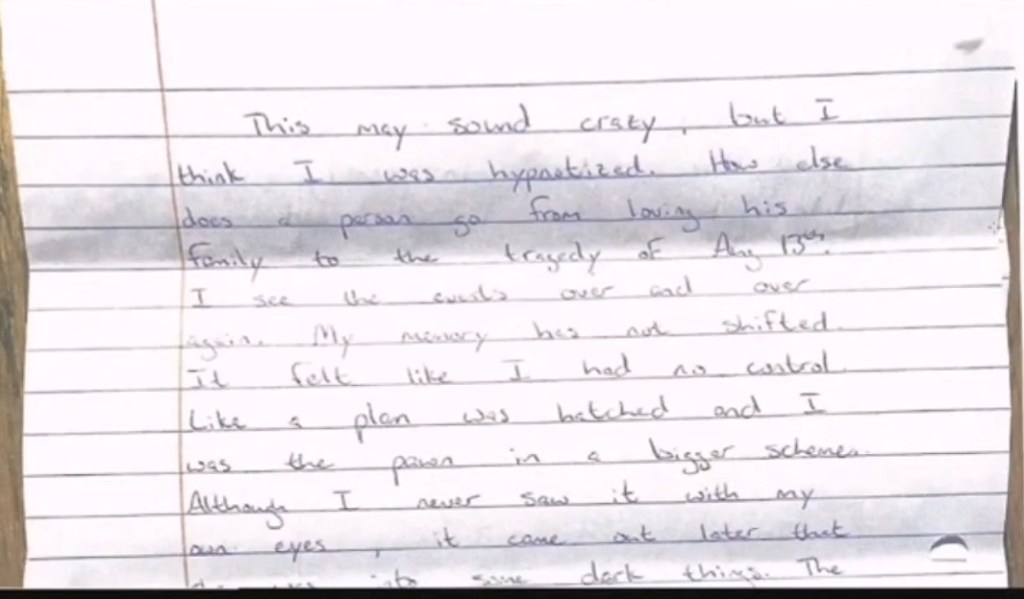 This may sound crazy, but I
think I was hypnotized. How else
does a person go from loving his
family to the tragedy of Aug 13th.
I see the events over and over
again. My memory has not shifted.
It felt like I had no control.
Like a plan was hatched and I
was the pawn in a bigger scheme.
Although I never saw it with my
own eyes, it came out later that
into some dark things. The